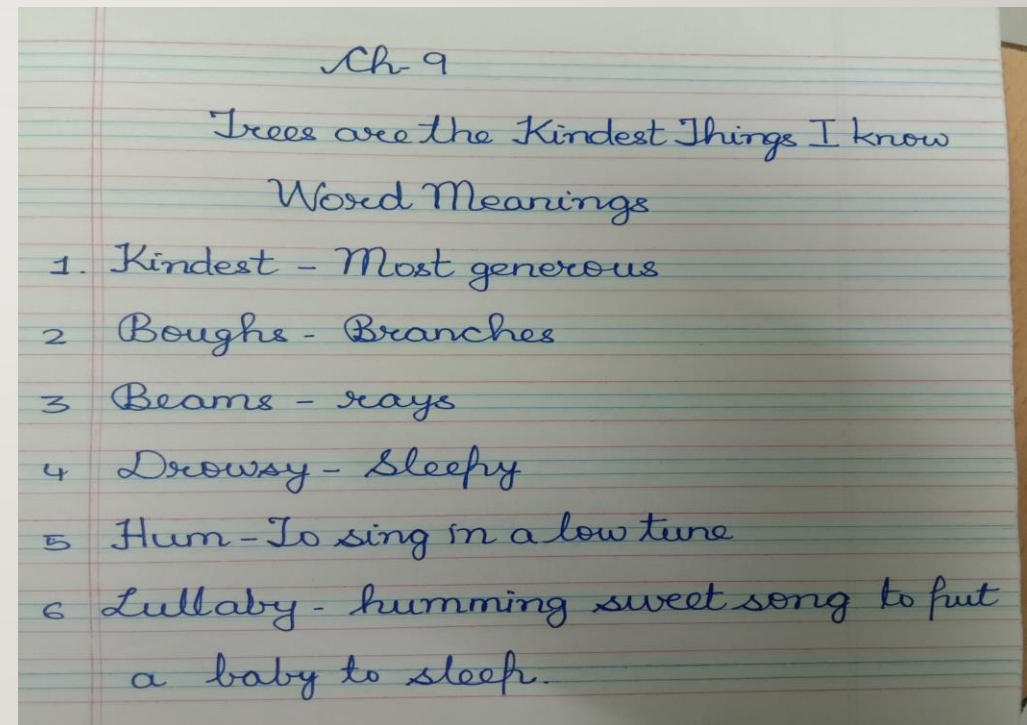 Ch-9
Trees are the Kindest Things I know
Word Meanings
1. Kindest - Most generous
2 Boughs - Branches
3 Beams - rays
4 Drowsy - Sleepy
5 Hum - To sing in a low tune
6 Lullaby - humming sweet song to put
a baby to sleep.